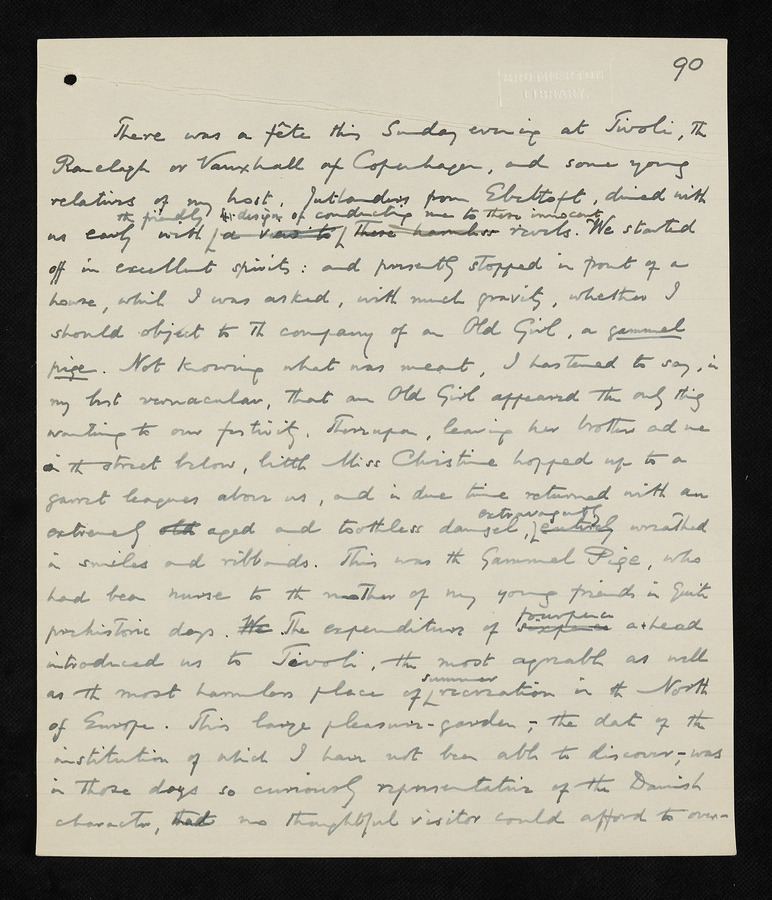 90
BROTHERTON
LIBRARY
There was a fête this Sunday evening at Tivoli, the
Ranelagh or Vauxhall of Copenhagen, and some young
relatives of my host, Jutlanders from Ebeltoft, dined with
the friendly design of conducting me to these innocent
us early with a view to these harmless revels. We started
off in excellent spirits: and presently stopped in front of a
house, while I was asked, with much gravity, whether I
should object to the company of an Old Girl, a gammel
pige. Not knowing what was meant, I hastened to say, in
my best vernacular, that an Old Girl appeared the only thing
wanting to our festivity. Thereupon, leaving her brother and me
in the street below, little Miss Christine hopped up to a
garret leagues above us, and in due time returned with an
extravagantly
extremely old aged and toothless damsel, entirely wreathed
in smiles and ribbands. This was the Gammel Pige, who
had been nurse to the mother of my young friends in quite
prehistoric days. We The expenditure of
fourpence
sixpence a-head
introduced us to Tivoli, the most agreeable as well
summer
as the most harmless place of recreation in the North
of Europe. This large pleasure-garden,- the date of the
institution of which I have not been able to discover,- was
in those days so curiously representative of the Danish
character, that no thoughtful visitor could afford to over-